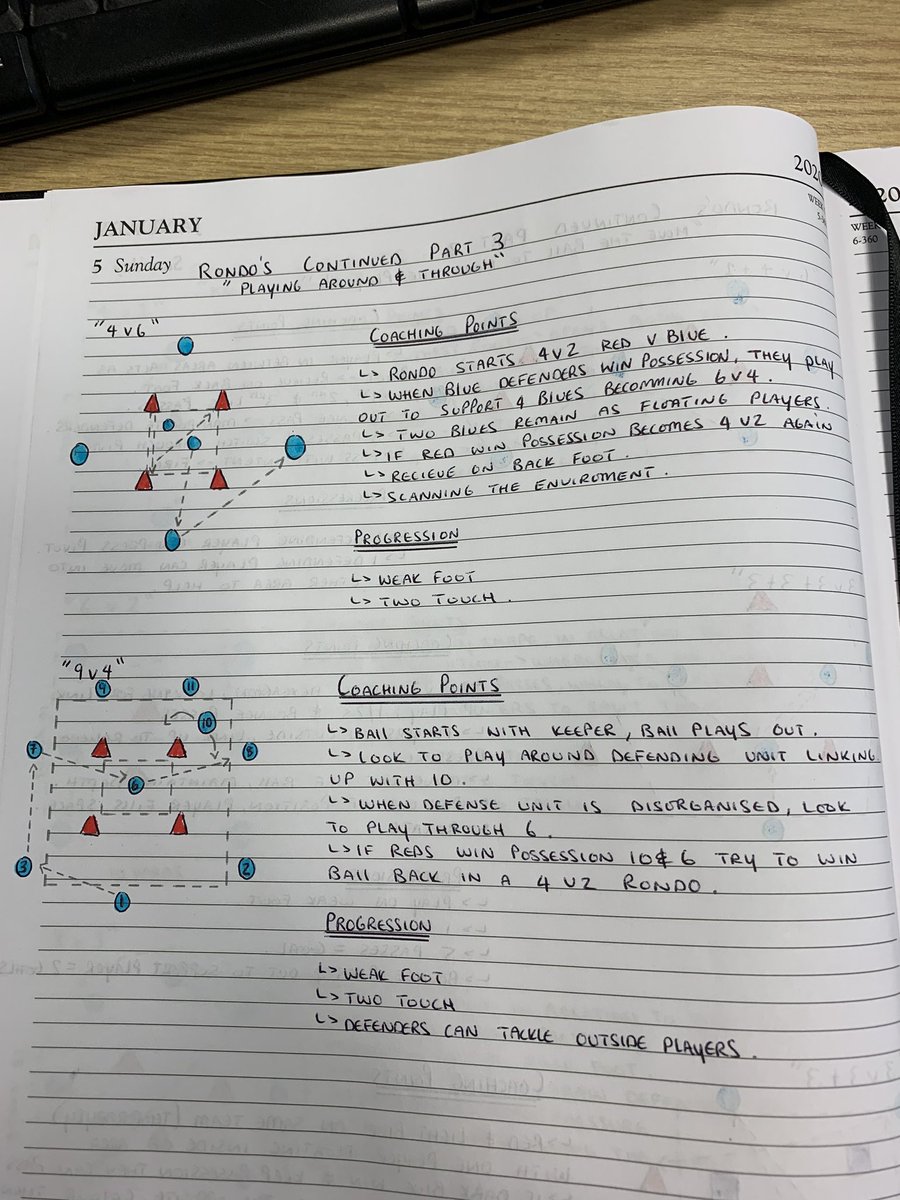 JANUARY
2020
5 Sunday
RONDO'S CONTINUED PART 3
"PLAYING AROUND & THROUGH"
"4 v 6"
COACHING POINTS
↳ RONDO STARTS 4 V 2 RED V BLUE.
↳ WHEN BLUE DEFENDERS WIN POSSESSION, THEY PLAY
OUT TO SUPPORT 4 BLUES BECOMMING 6 V 4.
↳ TWO BLUES REMAIN AS FLOATING PLAYERS.
↳ IF RED WIN POSSESSION BECOMES 4 V 2 AGAIN
↳ RECIEVE ON BACK FOOT.
↳ SCANNING THE ENVIROMENT.
PROGRESSION
↳ WEAK FOOT
↳ TWO TOUCH.
"9 v 4"
9 11
10
7 8
6
3 2
1
COACHING POINTS
↳ BALL STARTS WITH KEEPER, BALL PLAYS OUT.
↳ LOOK TO PLAY AROUND DEFENDING UNIT LINKING
UP WITH 10.
↳ WHEN DEFENSE UNIT IS DISORGANISED, LOOK
TO PLAY THROUGH 6.
↳ IF REDS WIN POSSESSION 10 & 6 TRY TO WIN
BALL BACK IN A 4 V 2 RONDO.
PROGRESSION
↳ WEAK FOOT
↳ TWO TOUCH
↳ DEFENDERS CAN TACKLE OUTSIDE PLAYERS.
20
WEEK
6-360